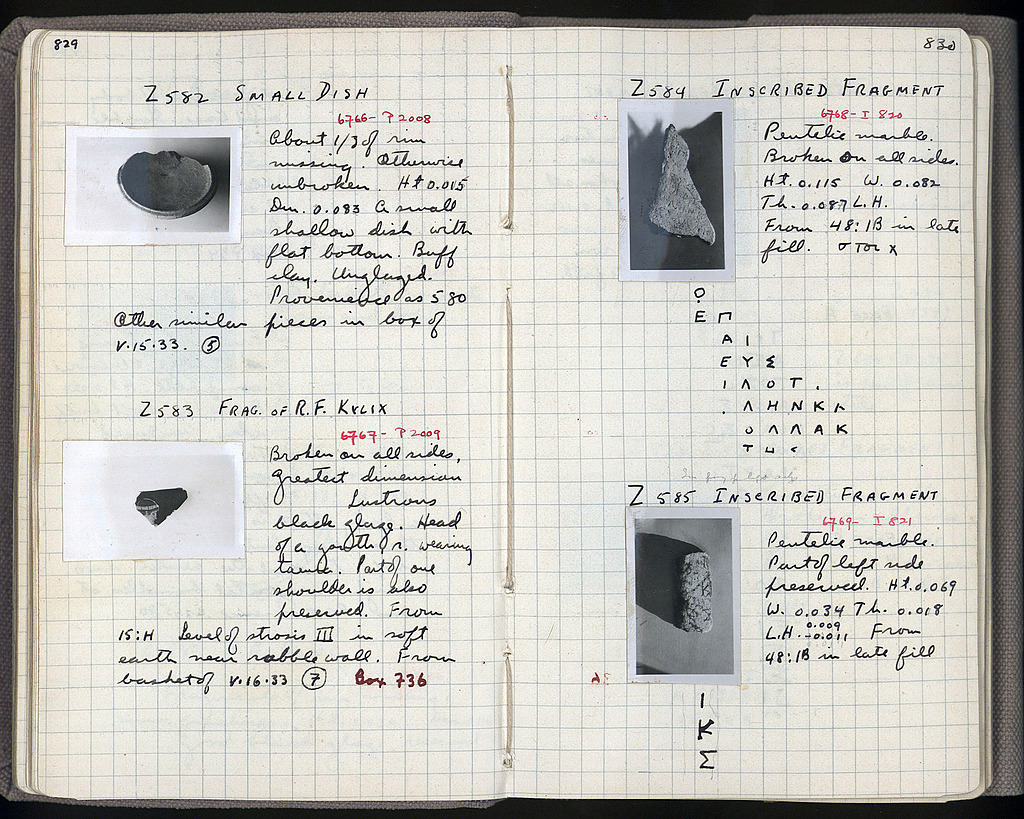 829
Z 582 SMALL DISH
6766 - P 2008
About 1/3 of rim
missing. Otherwise
unbroken. Ht 0.015
Dm. 0.083 A small
shallow dish with
flat bottom. Buff
clay. Unglazed.
Provenience as 580
Other similar pieces in box of
V.15.33. 5
Z 583 FRAG. OF R.F. KYLIX
6767 - P 2009
Broken on all sides,
greatest dimension
Lustrous
black glaze. Head
of a youth r. wearing
taenia. Part of one
shoulder is also
preserved. From
15:H Level of strosis III in soft
earth near rubble wall. From
basket of V.16.33 7 Box 736
830
Z 584 INSCRIBED FRAGMENT
6768 - I 820
Pentelic marble.
Broken on all sides.
Ht. 0.115 W. 0.082
Th. 0.087 L.H.
From 48:1B in late
fill.
Ο
Ε Π
Α Ι
Ε Υ Σ
Ι Λ Ο Τ .
. Λ Η Ν Κ Λ
Ο Λ Λ Α Κ
Z 585 INSCRIBED FRAGMENT
6769 - I 821
Pentelic marble.
Part of left side
preserved. Ht. 0.069
W. 0.034 Th. 0.018
L.H. 0.009-0.011 From
48:1B in late fill
Ι
Κ
Σ